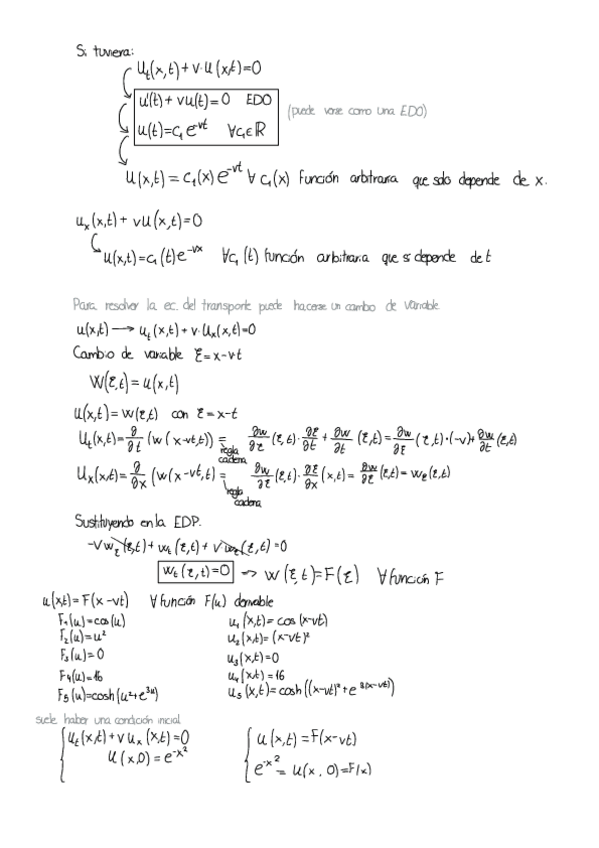 Si tuviera:
u_t(x,t) + v·u(x,t) = 0
u'(t) + vu(t) = 0 EDO (puede verse como una EDO)
u(t) = c₁e^{-vt} ∀c₁∈ℝ
u(x,t) = c₁(x)e^{-vt} ∀ c₁(x) función arbitraria que solo depende de x.
u_x(x,t) + vu(x,t) = 0
u(x,t) = c₁(t)e^{-vx} ∀c₁(t) función arbitraria que si depende de t
Para resolver la ec. del transporte puede hacerse un cambio de variable
u(x,t) → u_t(x,t) + v·u_x(x,t) = 0
Cambio de variable ξ = x-v·t
W(ξ,t) = u(x,t)
u(x,t) = w(ξ,t) con ξ = x-t
u_t(x,t) = ∂/∂t (w(x-vt,t)) = regla cadena ∂w/∂ξ (ξ,t)·∂ξ/∂t + ∂w/∂t (ξ,t) = ∂w/∂ξ (ξ,t)·(-v) + ∂w/∂t (ξ,t)
u_x(x,t) = ∂/∂x (w(x-vt,t) = regla cadena ∂w/∂ξ (ξ,t)·∂ξ/∂x (x,t) = ∂w/∂ξ (ξ,t) = w_ξ(ξ,t)
Sustituyendo en la EDP.
-vw_ξ(ξ,t) + w_t(ξ,t) + vw_ξ(ξ,t) = 0
w_t(ξ,t) = 0 → w(ξ,t) = F(ξ) ∀función F
u(x,t) = F(x-vt) ∀función F(u) derivable
F₁(u) = cos(u) u₁(x,t) = cos(x-vt)
F₂(u) = u² u₂(x,t) = (x-vt)²
F₃(u) = 0 u₃(x,t) = 0
F₄(u) = 16 u₄(x,t) = 16
F₅(u) = cosh(u²+e^{3u}) u₅(x,t) = cosh((x-vt)²+e^{3(x-vt)})
suele haber una condición inicial
u_t(x,t) + v u_x(x,t) = 0 u(x,t) = F(x-vt)
u(x,0) = e^{-x²} e^{-x²} = u(x,0) = F(x)